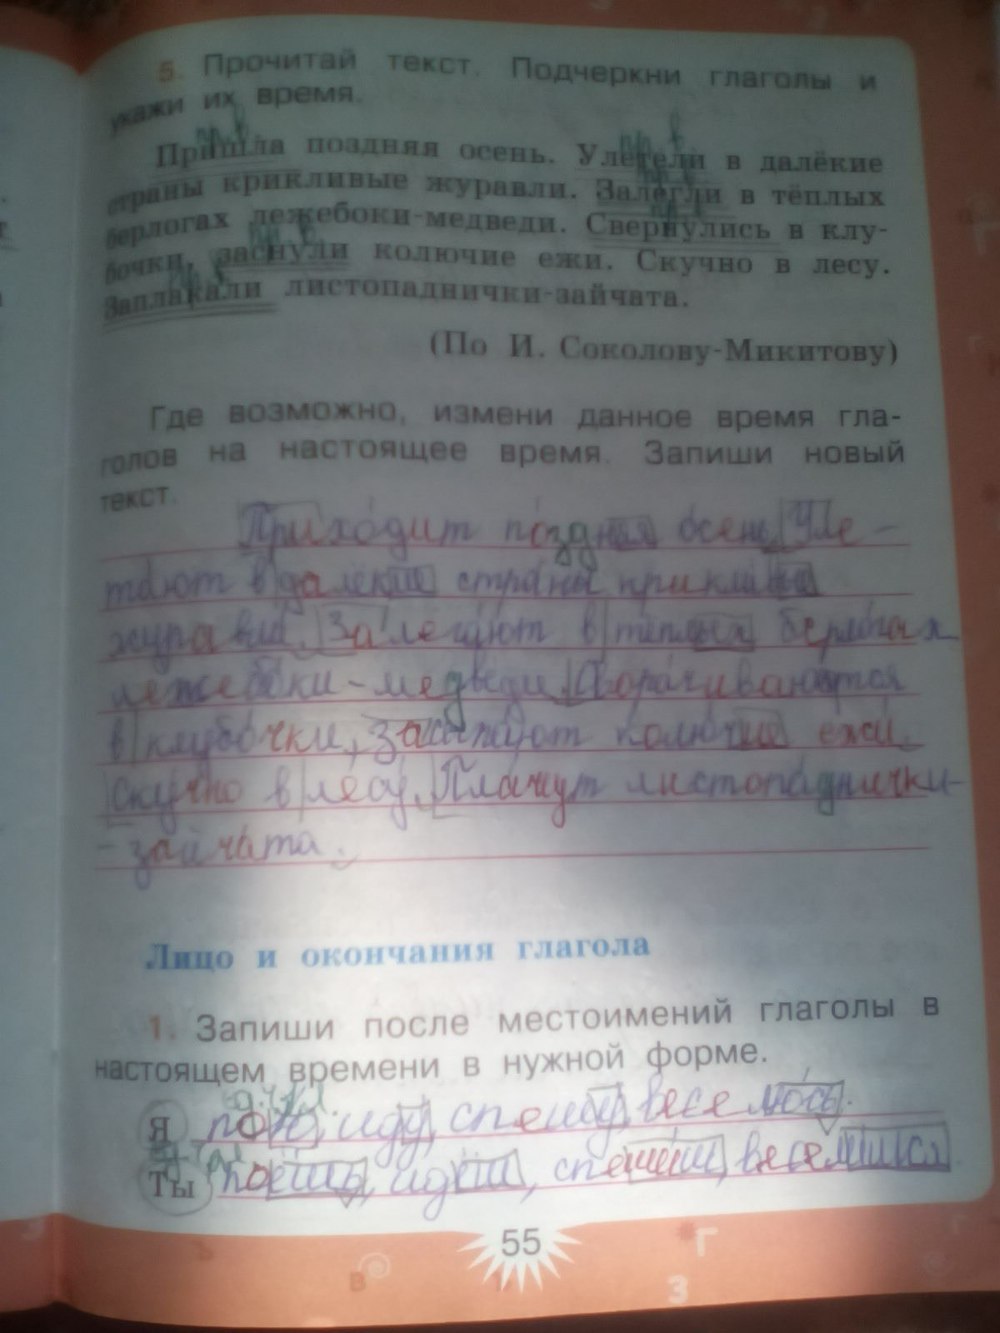 5. Прочитай текст. Подчеркни глаголы и
укажи их время.
Пришла поздняя осень. Улетели в далёкие
страны крикливые журавли. Залегли в тёплых
берлогах лежебоки-медведи. Свернулись в клу-
бочки, заснули колючие ежи. Скучно в лесу.
Заплакали листопаднички-зайчата.
(По И. Соколову-Микитову)
Где возможно, измени данное время гла-
голов на настоящее время. Запиши новый
текст.
Приходит поздняя осень. Уле-
тают в далёкие страны
журавли. Залегают в тёплых берлогах
лежебоки-медведи.
в клубочки, колючие ежи.
Скучно в лесу. Плачут листопаднички-
-зайчата.
Лицо и окончания глагола
1. Запиши после местоимений глаголы в
настоящем времени в нужной форме.
Я пою, иду, спешу, веселюсь.
Ты поёшь, идёшь,
55